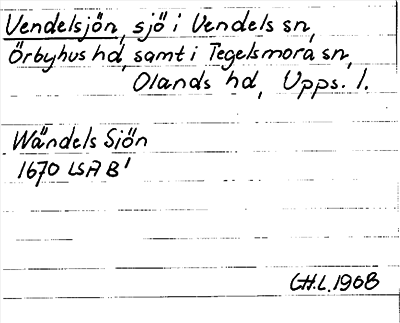 Vendelsjön, sjö i Vendels sn,
Örbyhus hd, samt i Tegelsmora sn,
Olands hd, Upps. l.
Wändels Siön
1670 LSA B¹
C.H.L. 1968